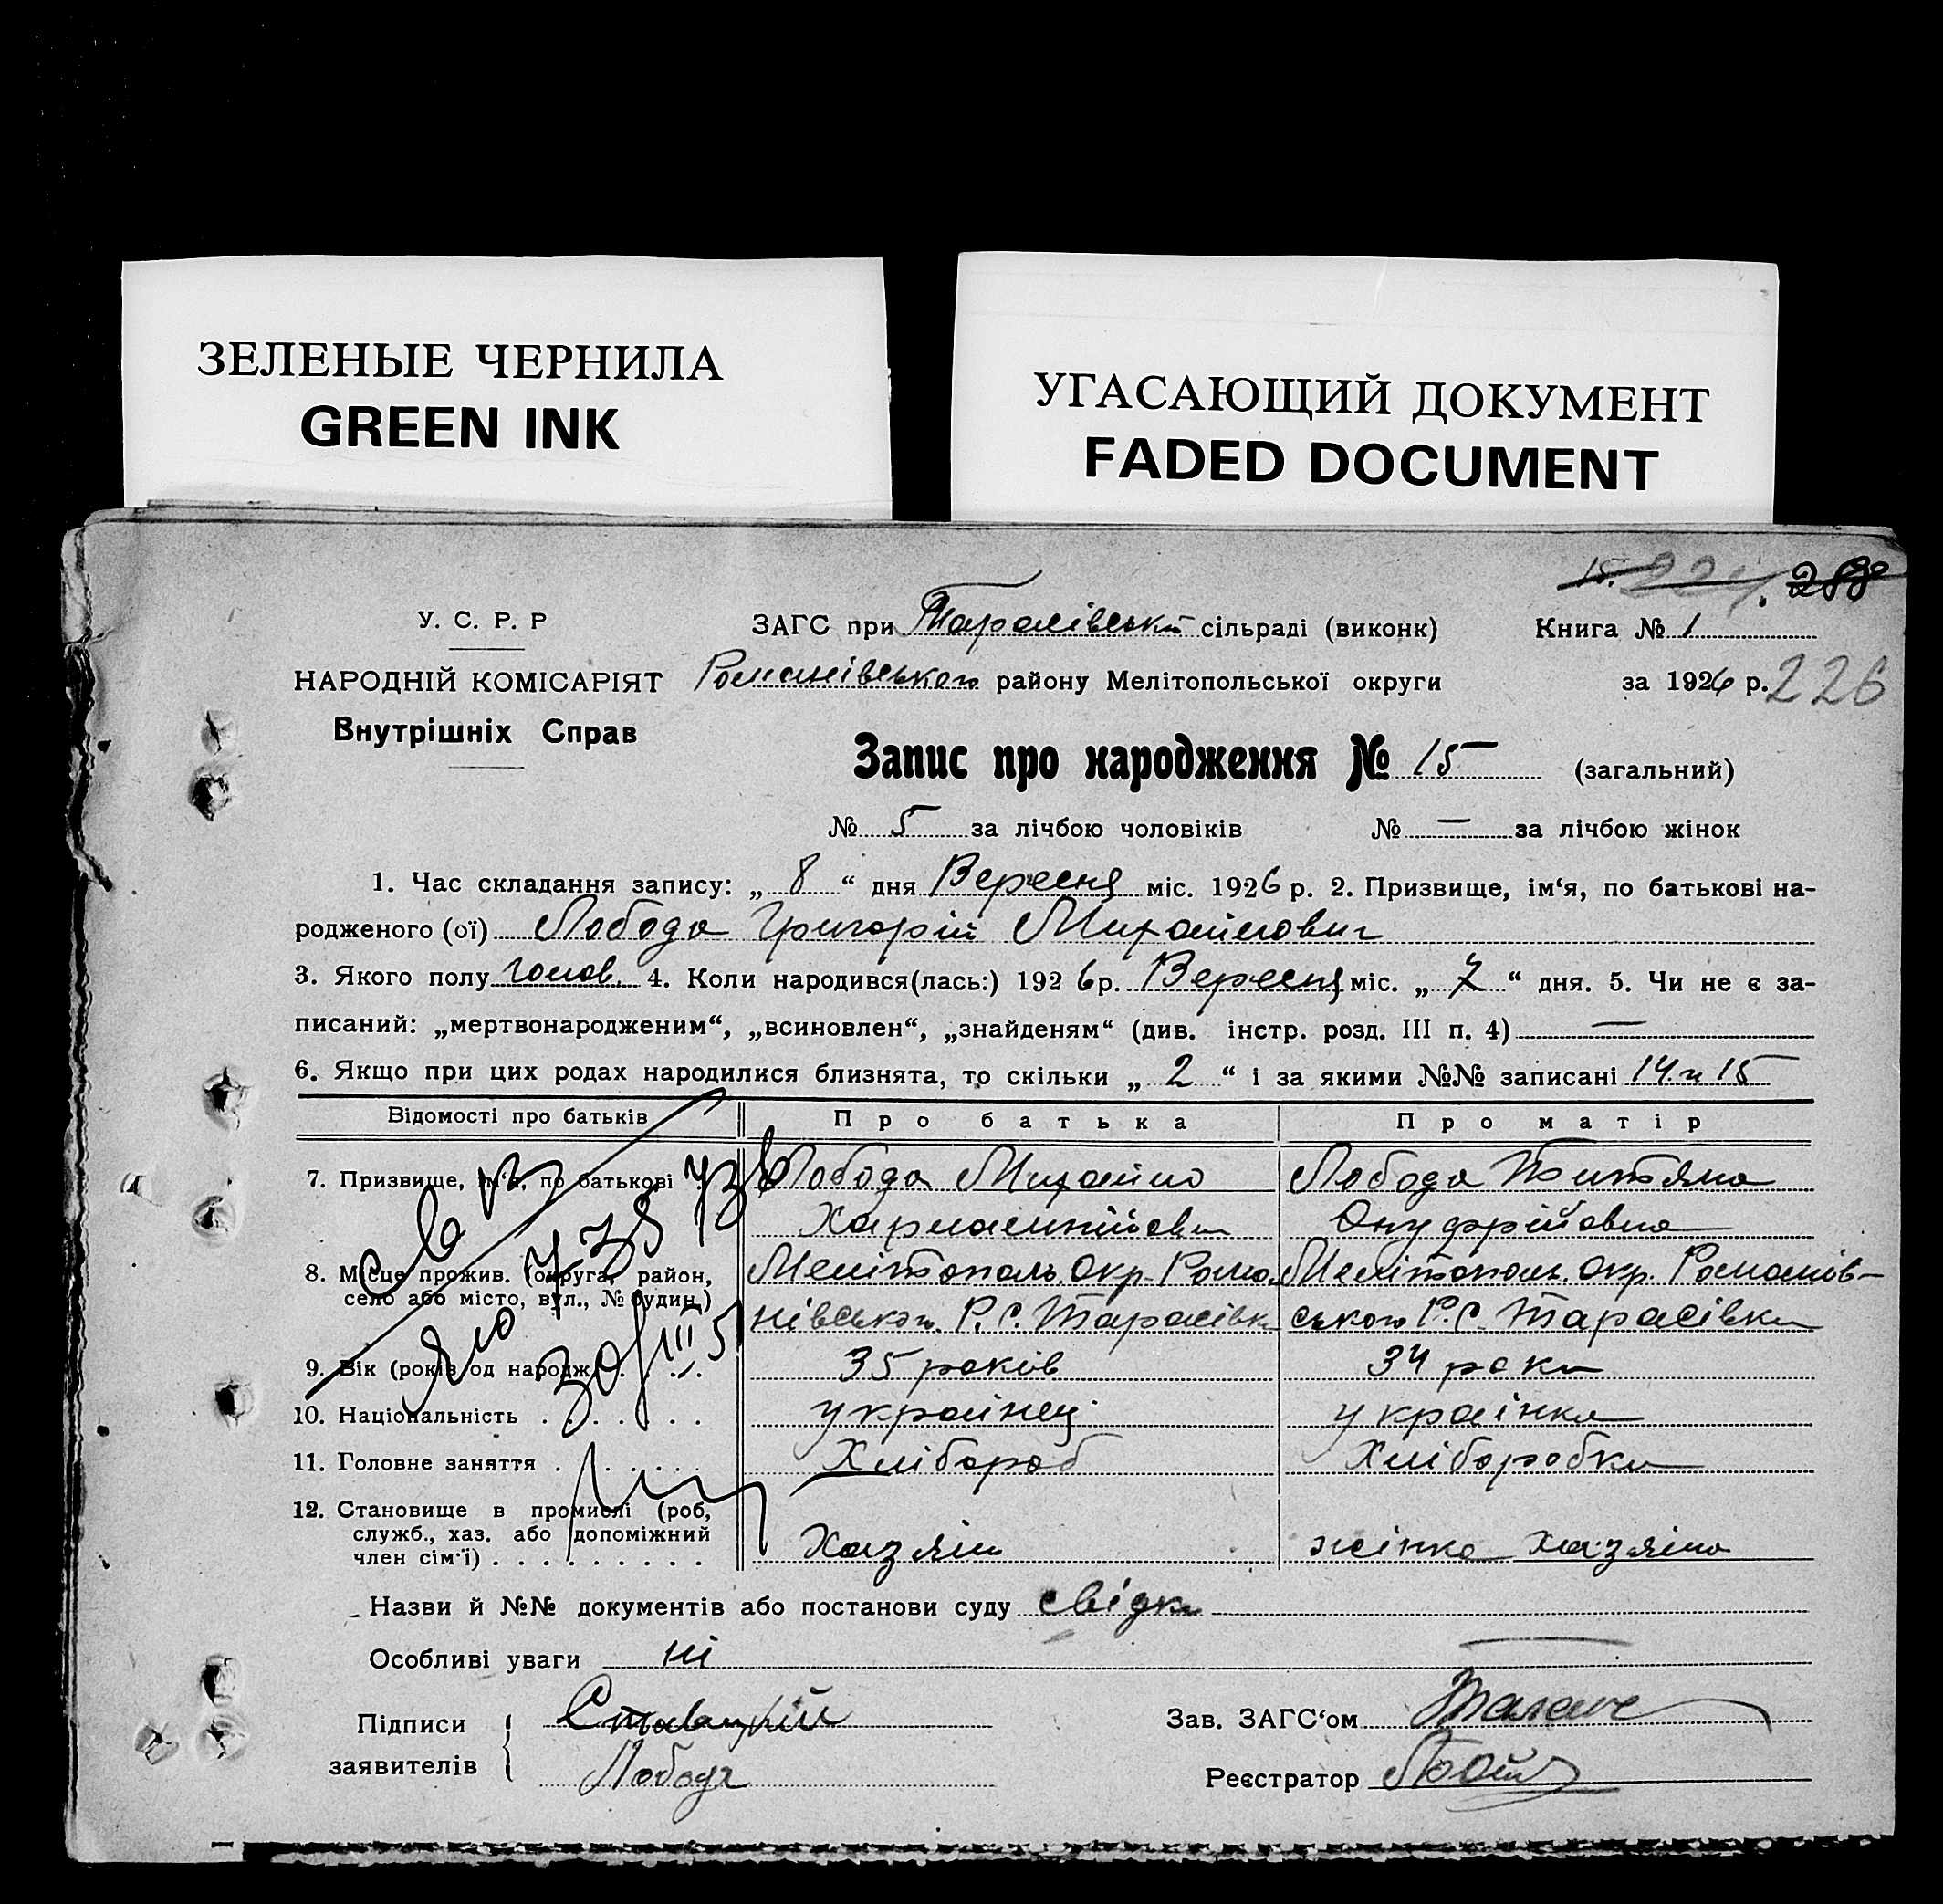 ЗЕЛЕНЫЕ ЧЕРНИЛА
GREEN INK
УГАСАЮЩИЙ ДОКУМЕНТ
FADED DOCUMENT
288
У. С. Р. Р
ЗАГС при Тарасівській сільраді (виконк)
Книга № 1
НАРОДНІЙ КОМІСАРІЯТ
Романівського району Мелітопольської округи
за 1926 р.
226
Внутрішніх Справ
Запис про народження № 15 (загальний)
№ 5 за лічбою чоловіків № — за лічбою жінок
1. Час складання запису: „ 8 “ дня Вересня міс. 1926 р. 2. Призвище, ім‘я, по батькові на-
родженого (ої) Лобода Григорій Михайлович
3. Якого полу чолов. 4. Коли народився(лась:) 1926 р. Вересня міс. „ 7 “ дня. 5. Чи не є за-
писаний: „мертвонародженим“, „всиновлен“, „знайденям“ (див. інстр. розд. III п. 4) —
6. Якщо при цих родах народилися близнята, то скільки „ 2 “ і за якими №№ записані 14 и 15
Відомості про батьків
Про батька
Про матір
7. Призвище, ім‘я, по батькові
Лобода Михайло
Лобода Титяна
Харлампійович
Онуфрійовна
8. Місце прожив. (округа, район,
село або місто, вул., № будин.)
Мелітополь. Окр. Рома-
Мелітополь. Окр. Романів-
нівського. Р. С. Тарасівка
ського Р. С. Тарасівка
9. Вік (років од народж.) . . . .
35 років
34 роки
30/III 51
10. Національність . . . . . . .
украінец
украінка
11. Головне заняття . . . . . .
Хлібороб
Хліборобка
12. Становище в промислі (роб,
служб., хаз. або допоміжний
член сім‘ї) . . . . . . . . .
Хазяін
жінка хазяіна
Назви й №№ документів або постанови суду свідки
Особливі уваги ні
Підписи
заявителів
Ставицкій
Лобода
Зав. ЗАГС‘ом
Реєстратор